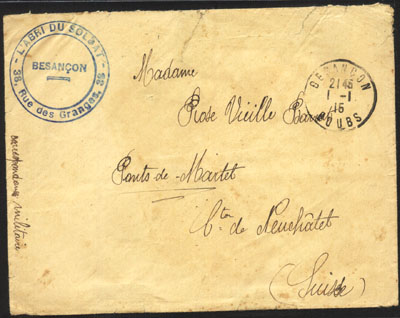 L'ABRI DU SOLDAT
BESANÇON
38, Rue des Granges, 38
BESANÇON
21 45
1 - 1
15
DOUBS
Madame
Rose Vieille
Ponts de-Martel
Cton de Neuchâtel
(Suisse)
correspondance militaire